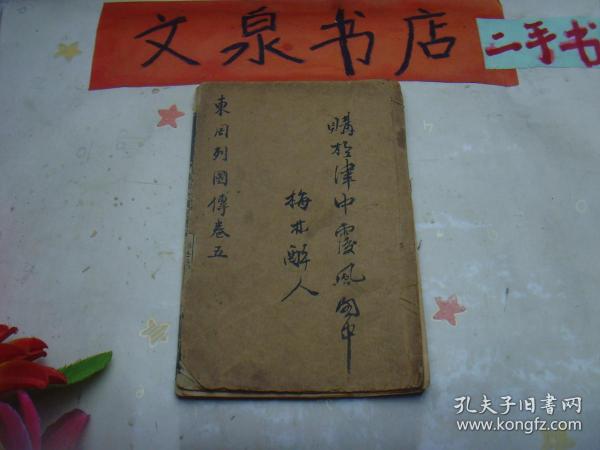 文泉书店
二手书
東周列國傳卷五
購於津中霞風
梅林醉人
孔夫子旧書网
www.kongfz.com